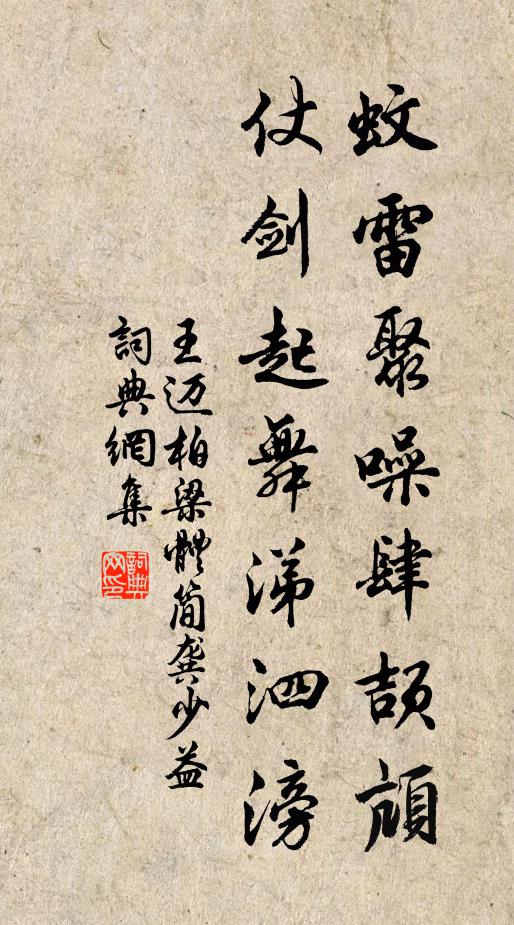 蚊雷聚噪肆頡頏
仗剑起舞涕泗滂
王迈柏梁體简龚少益
詞典網集
詞典网印